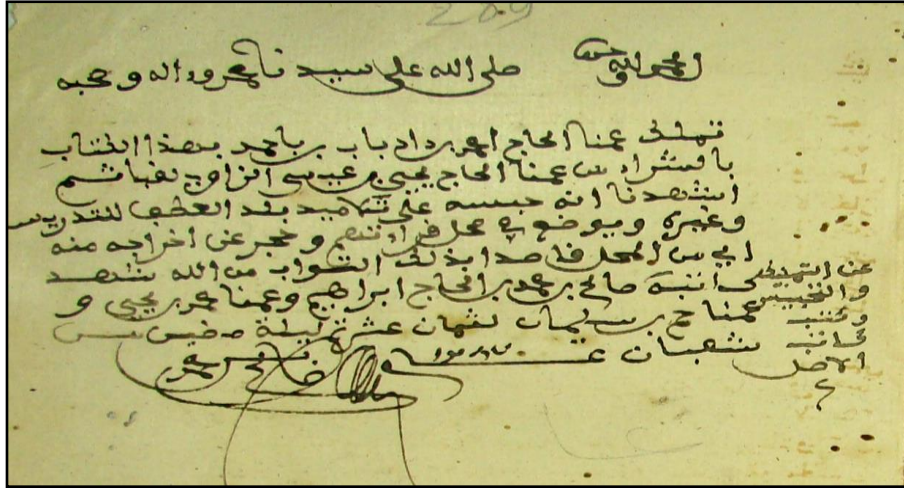 209
الحمد لله وحده صلى الله على سيدنا محمد وءاله وصحبه
تملك عمنا الحاج احمد بن داد باب بن باحمد بهذا الكتاب
بالشراء من عمنا الحاج يحيى بن عيسى ثم
اشهدنا انه حبسه على تلاميذ بلد العطف للتدريس
وغيره ويوضع في محل قراءتهم وحجر عن اخراجه منه
اي من المحل قاصدا بذلك الثواب من الله شهد
عن التمليك والتحبيس وكتب
اثبته صالح بن محمد بن الحاج ابراهيم وعمنا عمر بن يحيى و
عمنا بن سليمان لثمان عشر ليلة من
شعبان
كاتب الاصل